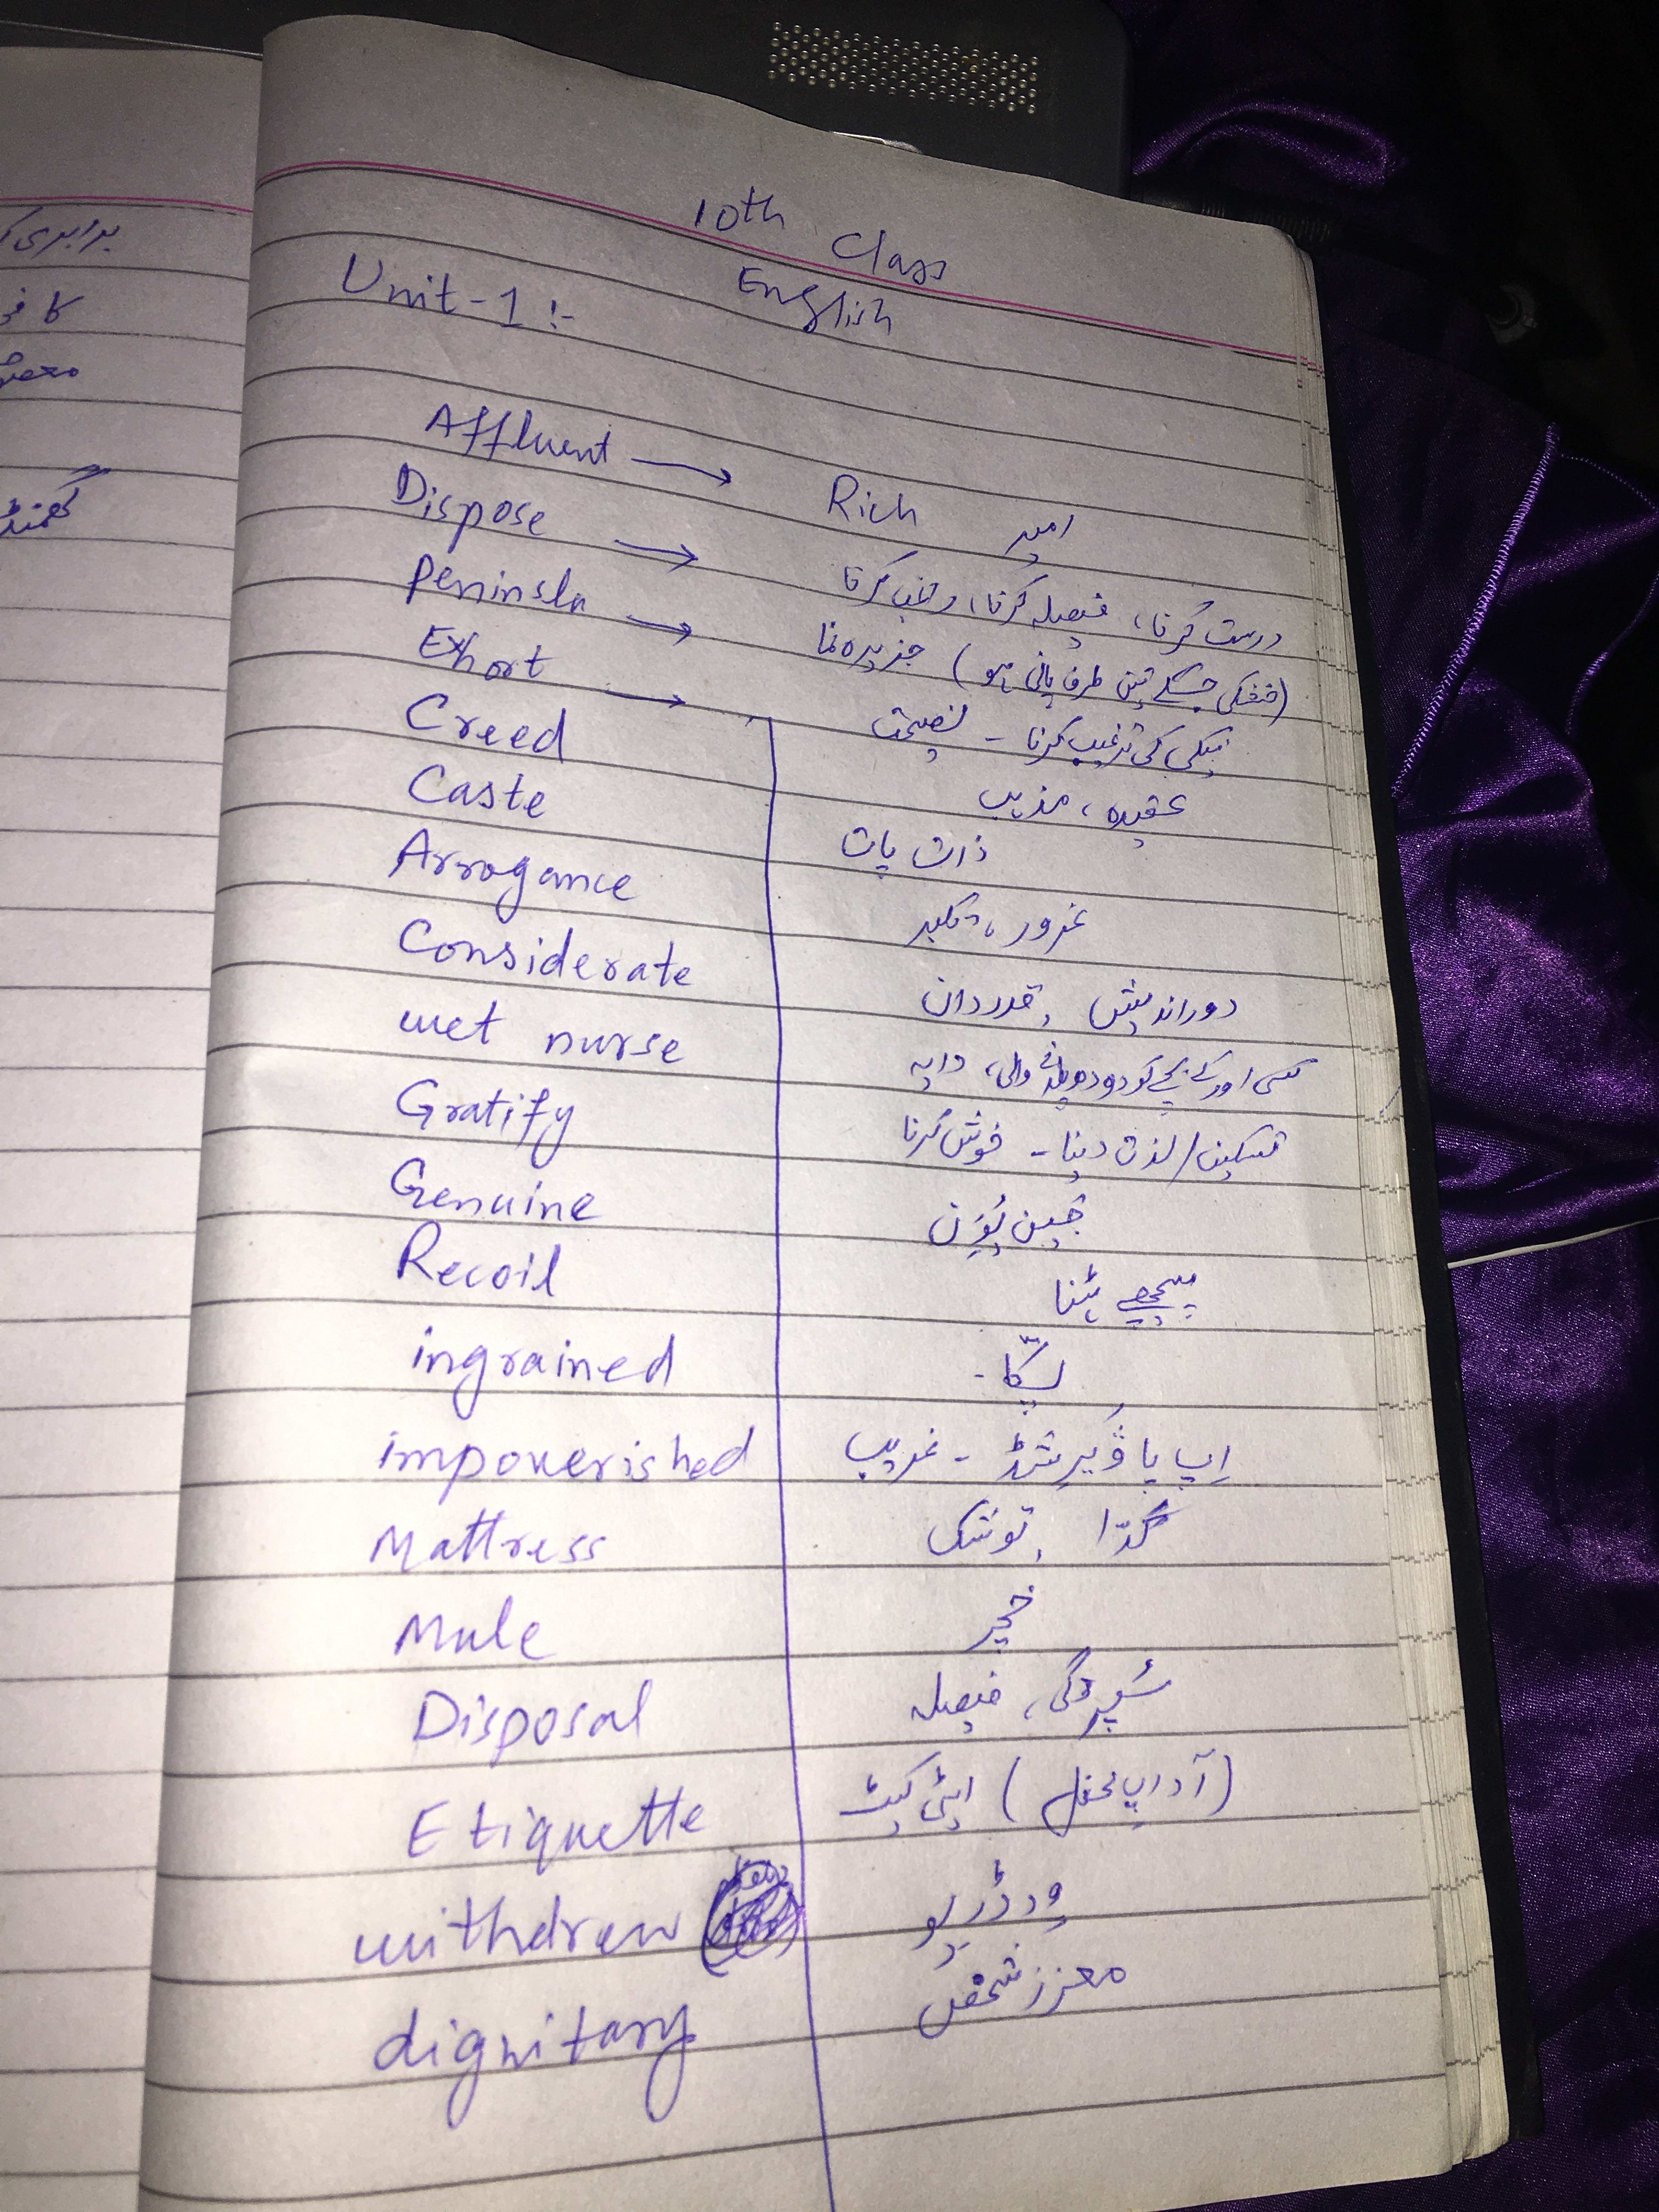 برابری
کا فر
گھمنڈ
10th Class
English
Unit-1:-
Affluent → Rich امیر
Dispose → درست کرنا، فیصلہ کرنا، راغب کرنا
Peninsla → جزیرہ نما (خشکی جسکے تین طرف پانی ہو)
Exhort → نیکی کی ترغیب کرنا - نصیحت
Creed عقیدہ، مذہب
Caste ذات پات
Arrogance غرور، تکبر
Considerate دوراندیش، قدردان
wet nurse کسی اور کے بچے کو دودھ پلانے والی، دایہ
Gratify تسکین/لذت دینا - خوش کرنا
Genuine جین یُوَن
Recoil پیچھے ہٹنا
ingrained پکّا -
impoverished اِمپاوَیرِشڈ - غریب
Mattress گدّا، توشک
Mule خچر
Disposal سُپردگی، فیصلہ
Etiquette ایٹی کیٹ (آدابِ محفل)
withdraw وِدڈریو
dignitary معزز شخص